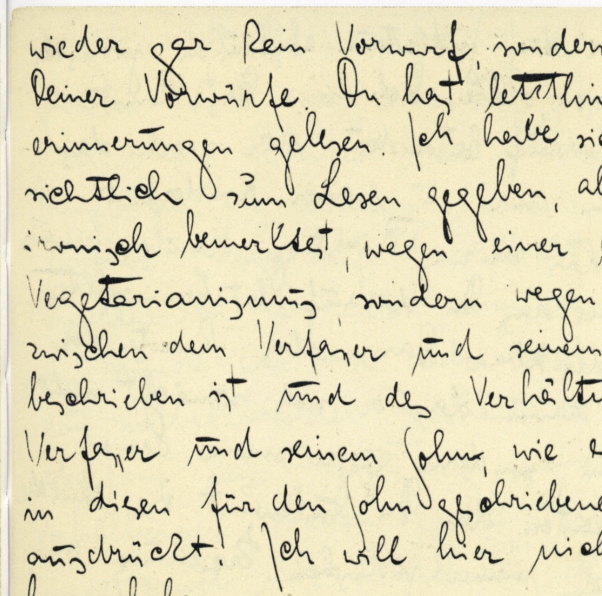 wieder gar kein Vorwurf, sondern
Deiner Vorwürfe. Du hast letzthin
erinnerungen gelesen. Ich habe sie
sichtlich zum Lesen gegeben,
ironisch bemerktest, wegen einer
Vegetarianismus, sondern wegen
zwischen dem Verfasser und seinem
beschrieben ist und des Verhält
Verfasser und seinem Sohn, wie e
in diesen für den Sohn geschriebene
ausdrückt. Ich will hier nich